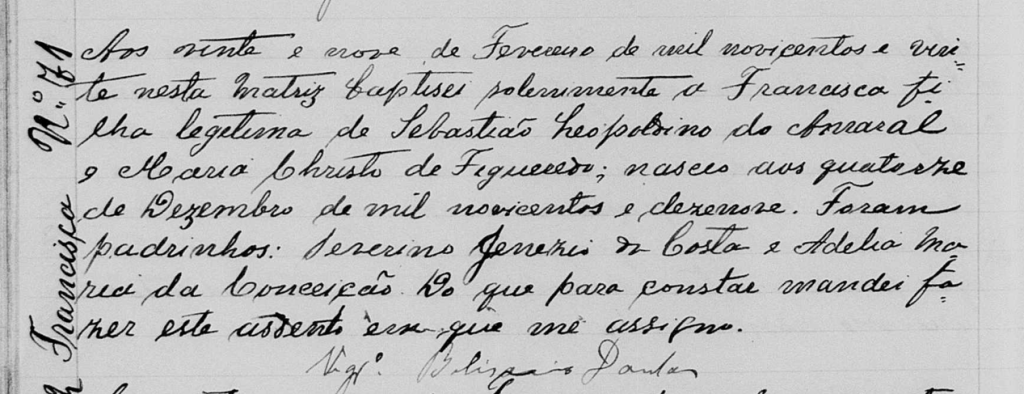 Nº 71
Francisca
Aos vinte e nove de Fevereiro de mil novicentos e vin=
te nesta Matriz baptisei solemnimente a Francisca fi=
lha legitima de Sebastião Leopoldino do Amaral
e Maria Christo de Figueredo; nasceu aos quatorze
de Dezembro de mil novicentos e dezenove. Foram
padrinhos: Severino Jenezio da Costa e Adelia Ma=
ria da Conceição. Do que para constar mandei fa=
zer este assento em que me assigno.
Vigº. Belisario Dantas